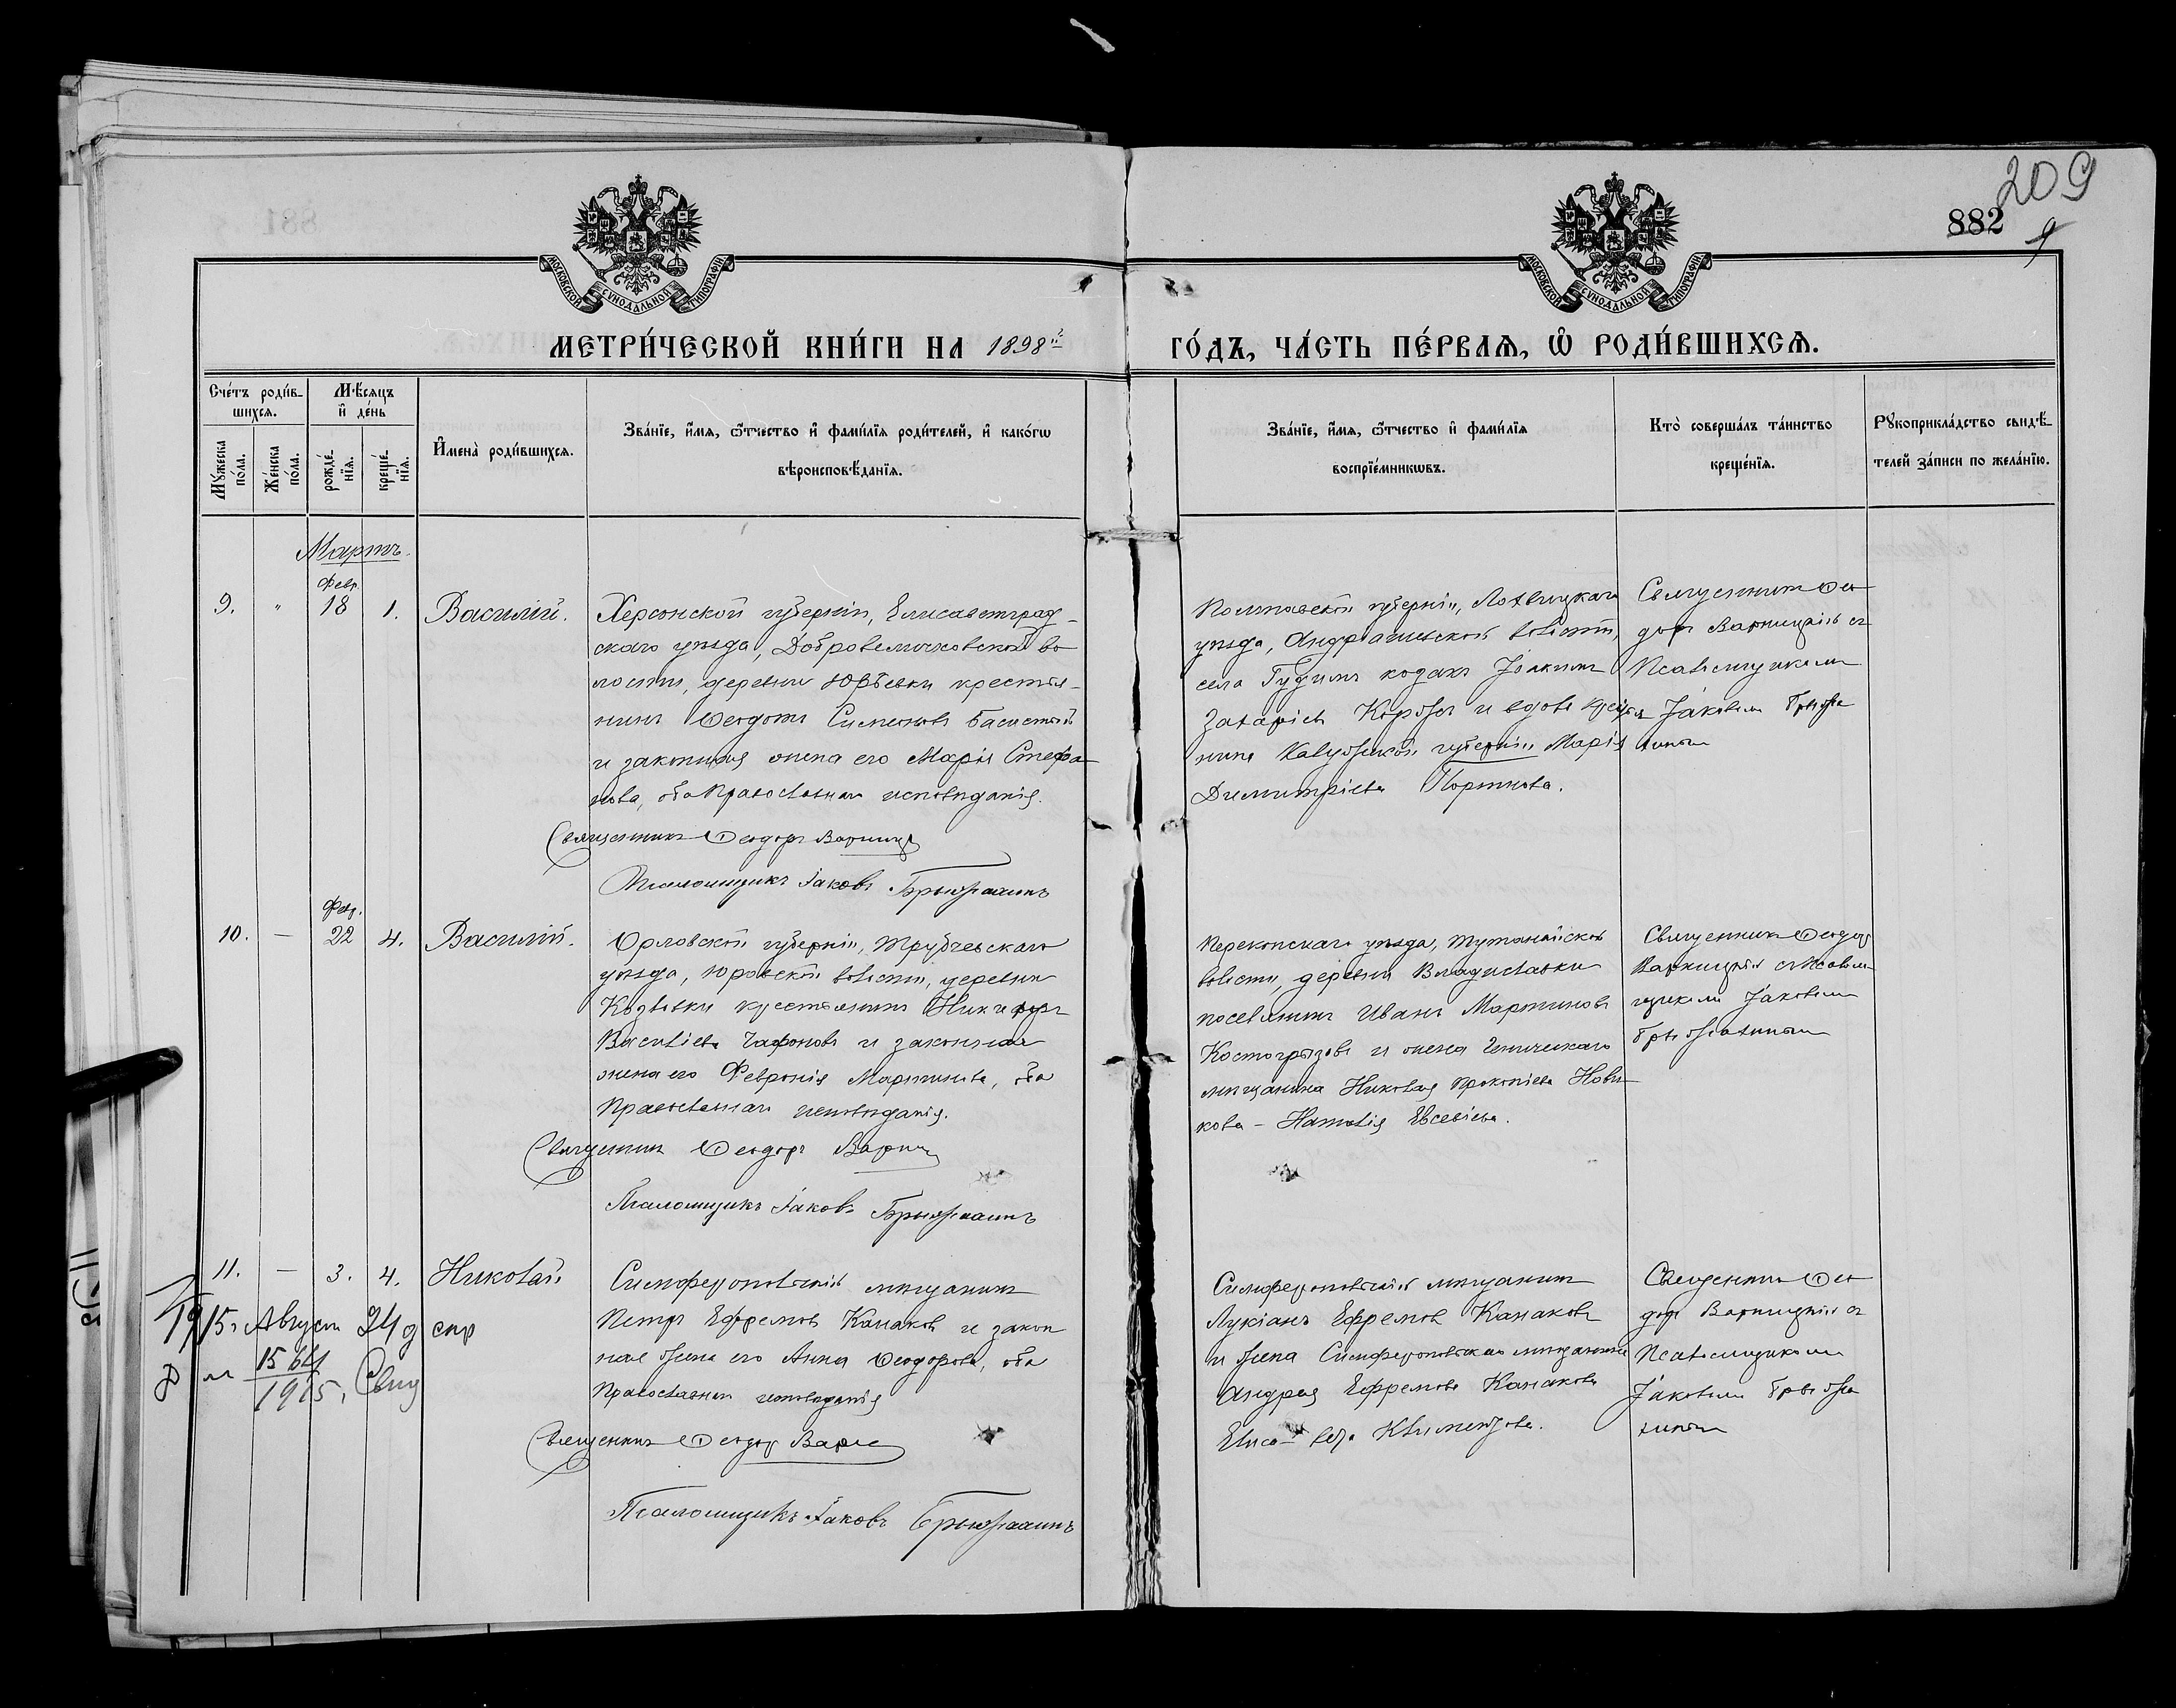 209
882
9
МОСКОВСКОЙ СѴНОДАЛЬНОЙ ТИПОГРАФІИ
МОСКОВСКОЙ СѴНОДАЛЬНОЙ ТИПОГРАФІИ
МЕТРИ́ЧЕСКОЙ КНИ́ГИ НА 1898 г
ГО́ДЪ, ЧА́СТЬ ПЕ́РВАЯ, Ѡ҆ РОДИ́ВШИХСЯ.
Сче́тъ роди́в-
шихся.
Мѣ́сяцъ
и҆ де́нь
Мꙋ́жеска
по́ла.
Же́нска
по́ла.
рожде́-
нїя.
креще́-
нїя.
И҆мена̀ роди́вшихся.
Зва́нїе, и҆́мя, ѻ҆́тчество и҆ фами́лїя роди́телей, и҆ како́гѡ
вѣроисповѣ́данїя.
Зва́нїе, и҆́мя, ѻ҆́тчество и҆ фами́лїя
воспрїе́мникѡвъ.
Кто̀ соверша́лъ та́инство
креще́нїя.
Рꙋкоприкла́дство свидѣ́-
телей за́писи по жела́нїю.
Мартъ.
Февр.
9. " 18 1. Василій.
Херсонской губерніи, Елисаветград-
скаго уѣзда, Добровеличковской во
лости, деревни Юрьевки крестья-
нинъ Ѳеодотъ Симеоновъ Басистый
и законная жена его Марія Стефа-
нова, оба Православнаго исповѣданія.
Священникъ Ѳеодоръ Варниц
Псаломщикъ Іаковъ Брыжахинъ
Полтавской губерніи, Лохвицкаго
уѣзда, Андріяшевской волости,
села Гудимъ козакъ Іоакимъ
Захаріевъ и вдова
Калужской губерніи Марія
Димитріева Портнова.
Священникъ Ѳео
доръ Варницкій съ
Псаломщикомъ
Іаковомъ Брыжа
хинымъ
Февр.
10. — 22 4. Василій.
Орловской губерніи, Трубчевскаго
уѣзда, Юровской волости, деревни
крестьянинъ Никифоръ
Васильевъ и законная
жена его Февронія Мартинова, оба
Православнаго исповѣданія.
Священникъ Ѳеодоръ Варниц
Псаломщикъ Іаковъ Брыжахинъ
Перекопскаго уѣзда, Тутанайской
волости, деревни Владиславки
поселянинъ Иванъ Мартиновъ
Костогрызовъ и жена Геническаго
мѣщанина Николая Прокопіева Нови-
кова – Наталія Евсевіева.
Священникъ Ѳеодоръ
Варницкій съ Псалом-
щикомъ Іаковомъ
Брыжахинымъ
11. — 3. 4. Николай
Симферопольскій мѣщанинъ
Петръ Ефремовъ Канаковъ и закон
ная жена его Анна Ѳеодорова, оба
Православнаго исповѣданія
Священникъ Ѳеодоръ Варни
Псаломщикъ Іаковъ Брыжахинъ
Симферопольскій мѣщанинъ
Лукіанъ Ефремовъ Канаковъ
и жена Симферопольскаго мѣщанина
Андрея Ефремова Канакова
Елиса- вета Климентова.
Священникъ Ѳео
доръ Варницкій съ
Псаломщикомъ
Іаковомъ Брыжа
хинымъ
1915 г Август 24 д
1915,